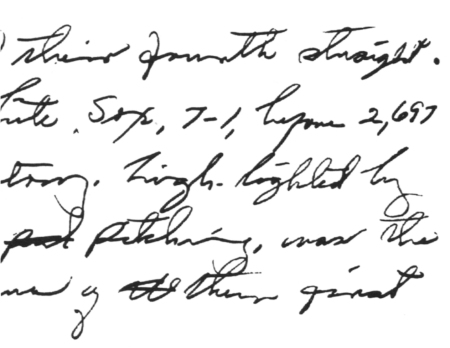 ) their fourth straight.
hite Sox, 7-1, before 2,697
tory. high-lighted by
pitching, was the
of their first